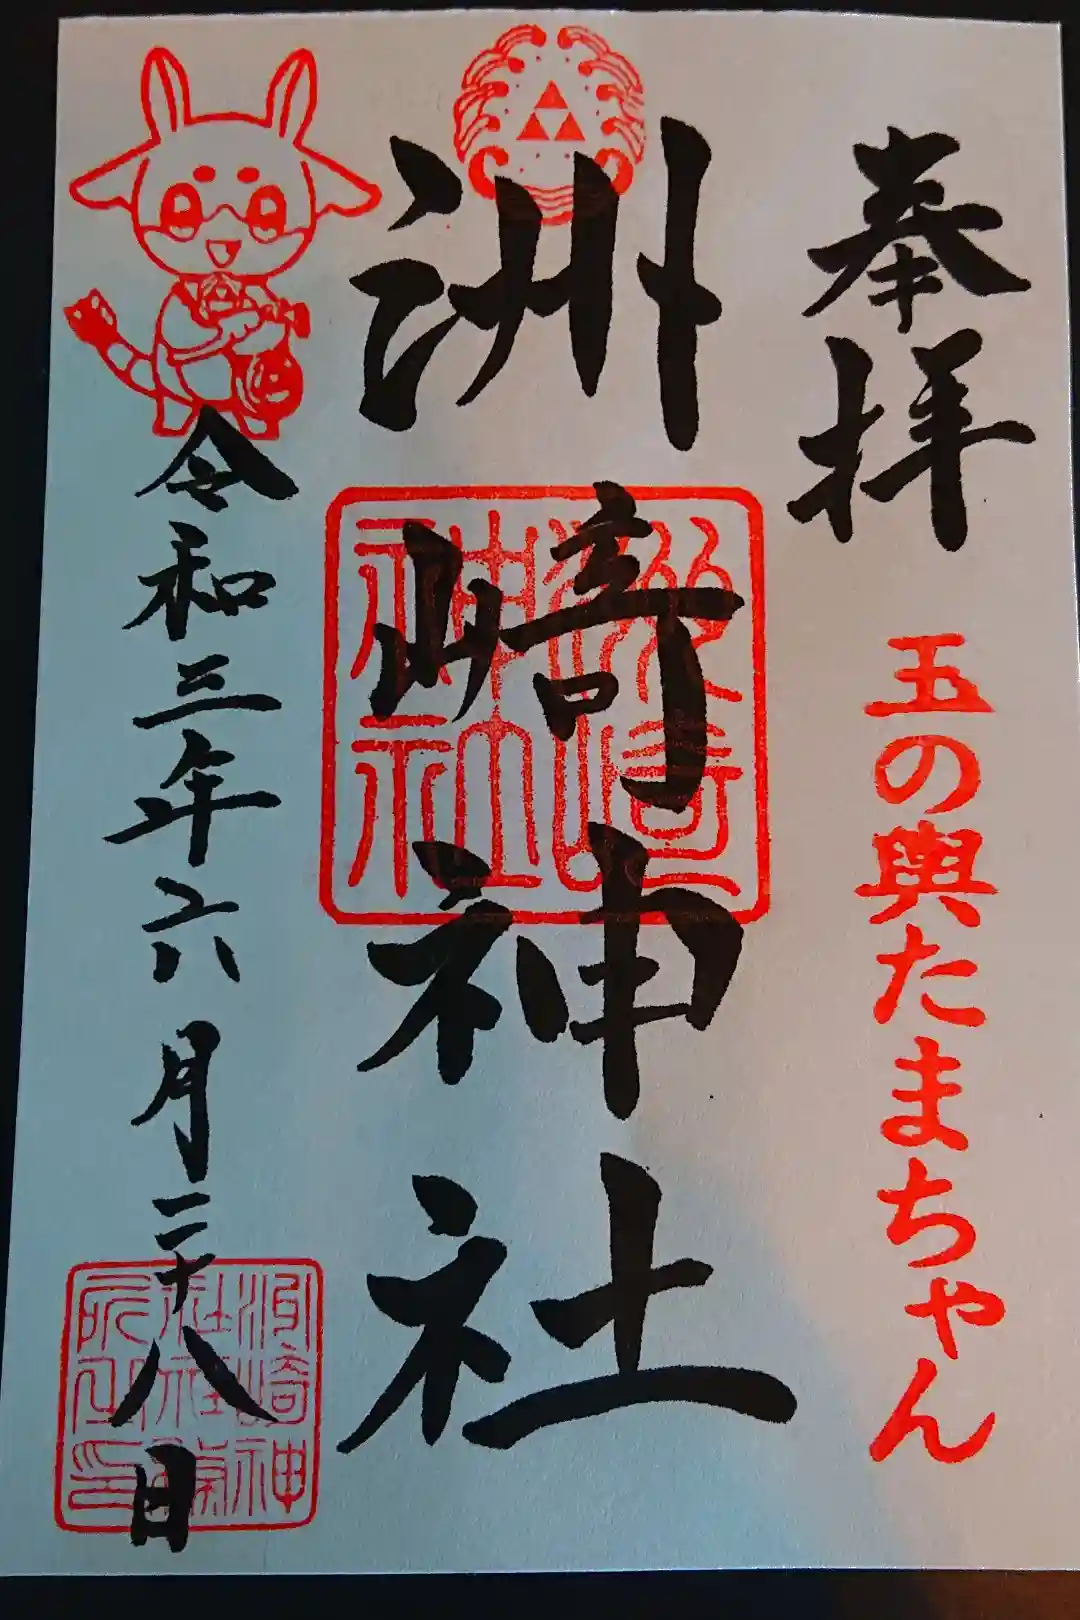 奉拝
玉の輿たまちゃん
洲崎神社
洲崎神社
令和三年六月二十八日